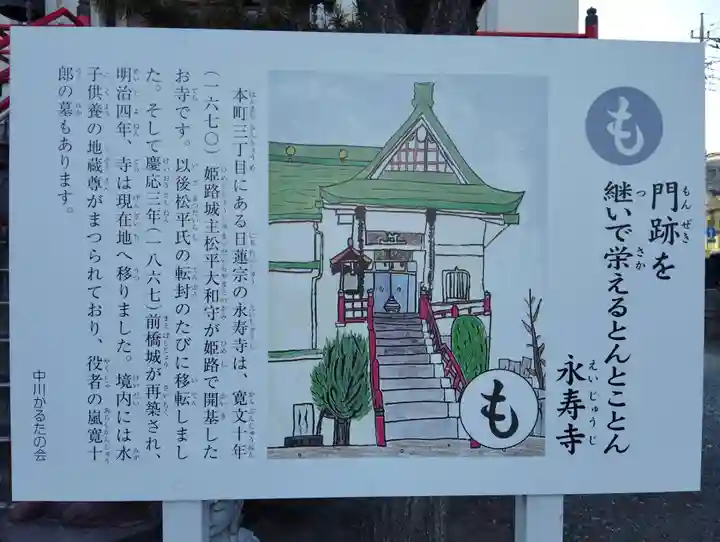 も
門跡を
継いで栄えるとんとことん
永寿寺
も
本町三丁目にある日蓮宗の永寿寺は、寛文十年
(一六七〇)姫路城主松平大和守が姫路で開基した
お寺です。以後松平氏の転封のたびに移転しまし
た。そして慶応三年(一八六七)前橋城が再築され、
明治四年、寺は現在地へ移りました。境内には水
子供養の地蔵尊がまつられており、役者の嵐寛十
郎の墓もあります。
中川かるたの会